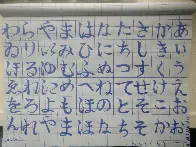 あいうえおお
かきくけこか
さしすせそそ
たちつてとち
なにぬねのな
はひふへほほ
まみむめもま
やいゆえよや
らりるれろれ
わゐゑをん